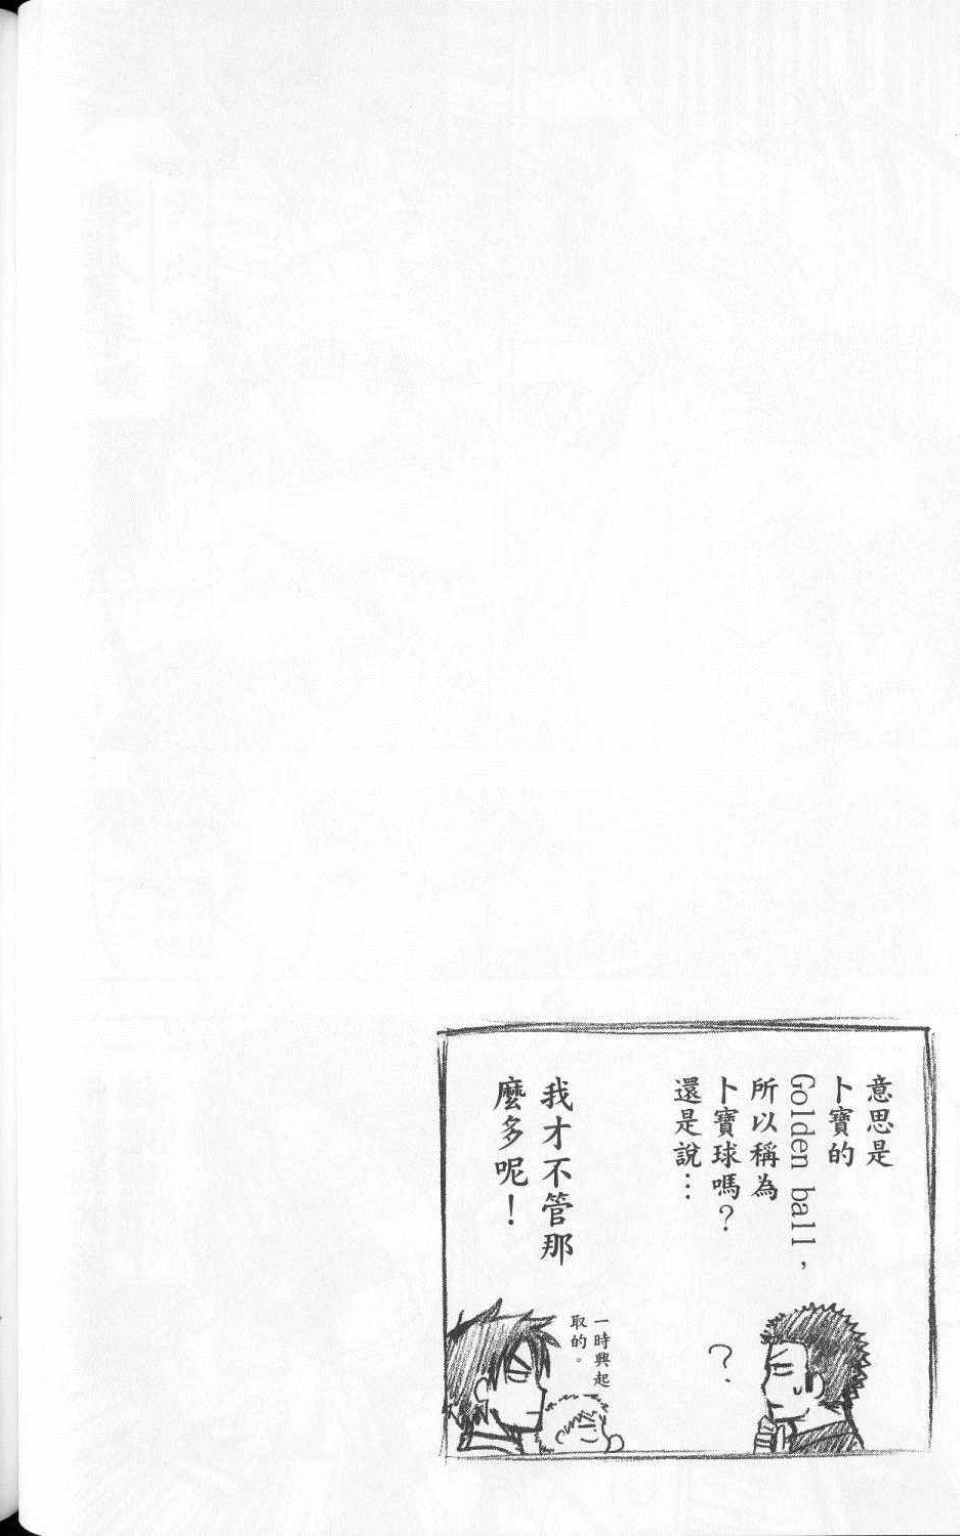 意思是
卜寶的
Golden ball，
所以稱為
卜寶球嗎？
還是說…
？
一時興起
取的。
我才不管那
麼多呢！